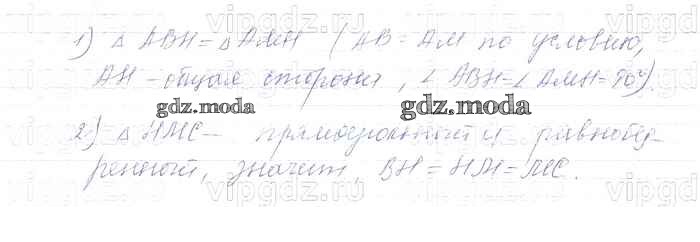 1) △ ABH = △ AMH (AB = AM по условию,
AH - общая сторона, ∠ ABH = ∠ AMH = 90°).
gdz.moda gdz.moda
2) △ HMC - прямоугольный и равнобед-
ренный, значит, BH = HM = MC.
vipgdz.ru vipgdz.ru vipgdz.ru